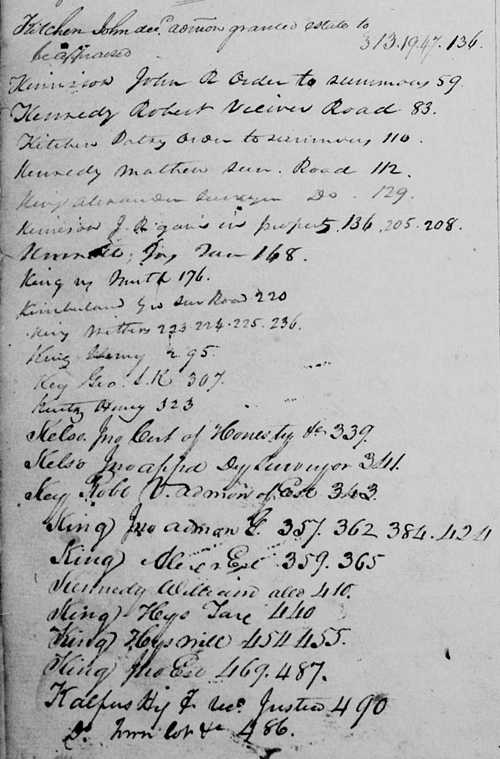 Kitchen John dec'd admōn granted estate to
be appraised 313.1947.136.
Kinnison John R Order to summons 59.
Kennedy Robert Road 83.
Kitchen order to summons 110.
Kennedy Mathew Sur. Road 112.
King Alexander Surveyor Do. 129.
Kinnison J. R. in property. 136. 205. 208.
Jno 168.
King vs Smith 176.
Kimberland Geo Sur Road 220
King 223.224.225.236.
King Henry 295.
Key Geo. S.K 307.
Henry 323
Kelso Jno Cert of Honesty &c 339.
Kelso Jno appd Dy Surveyor 341.
Key Robt V. admōn of Est 343.
King Jno admōn 357. 362 384. 424
King Est 359. 365
Kennedy William 410.
King Hys 440
King Hys will 454 455.
King Jno Est 469. 487.
Kalfus Hy F. Justice 490
Do Town Lot &c 486.